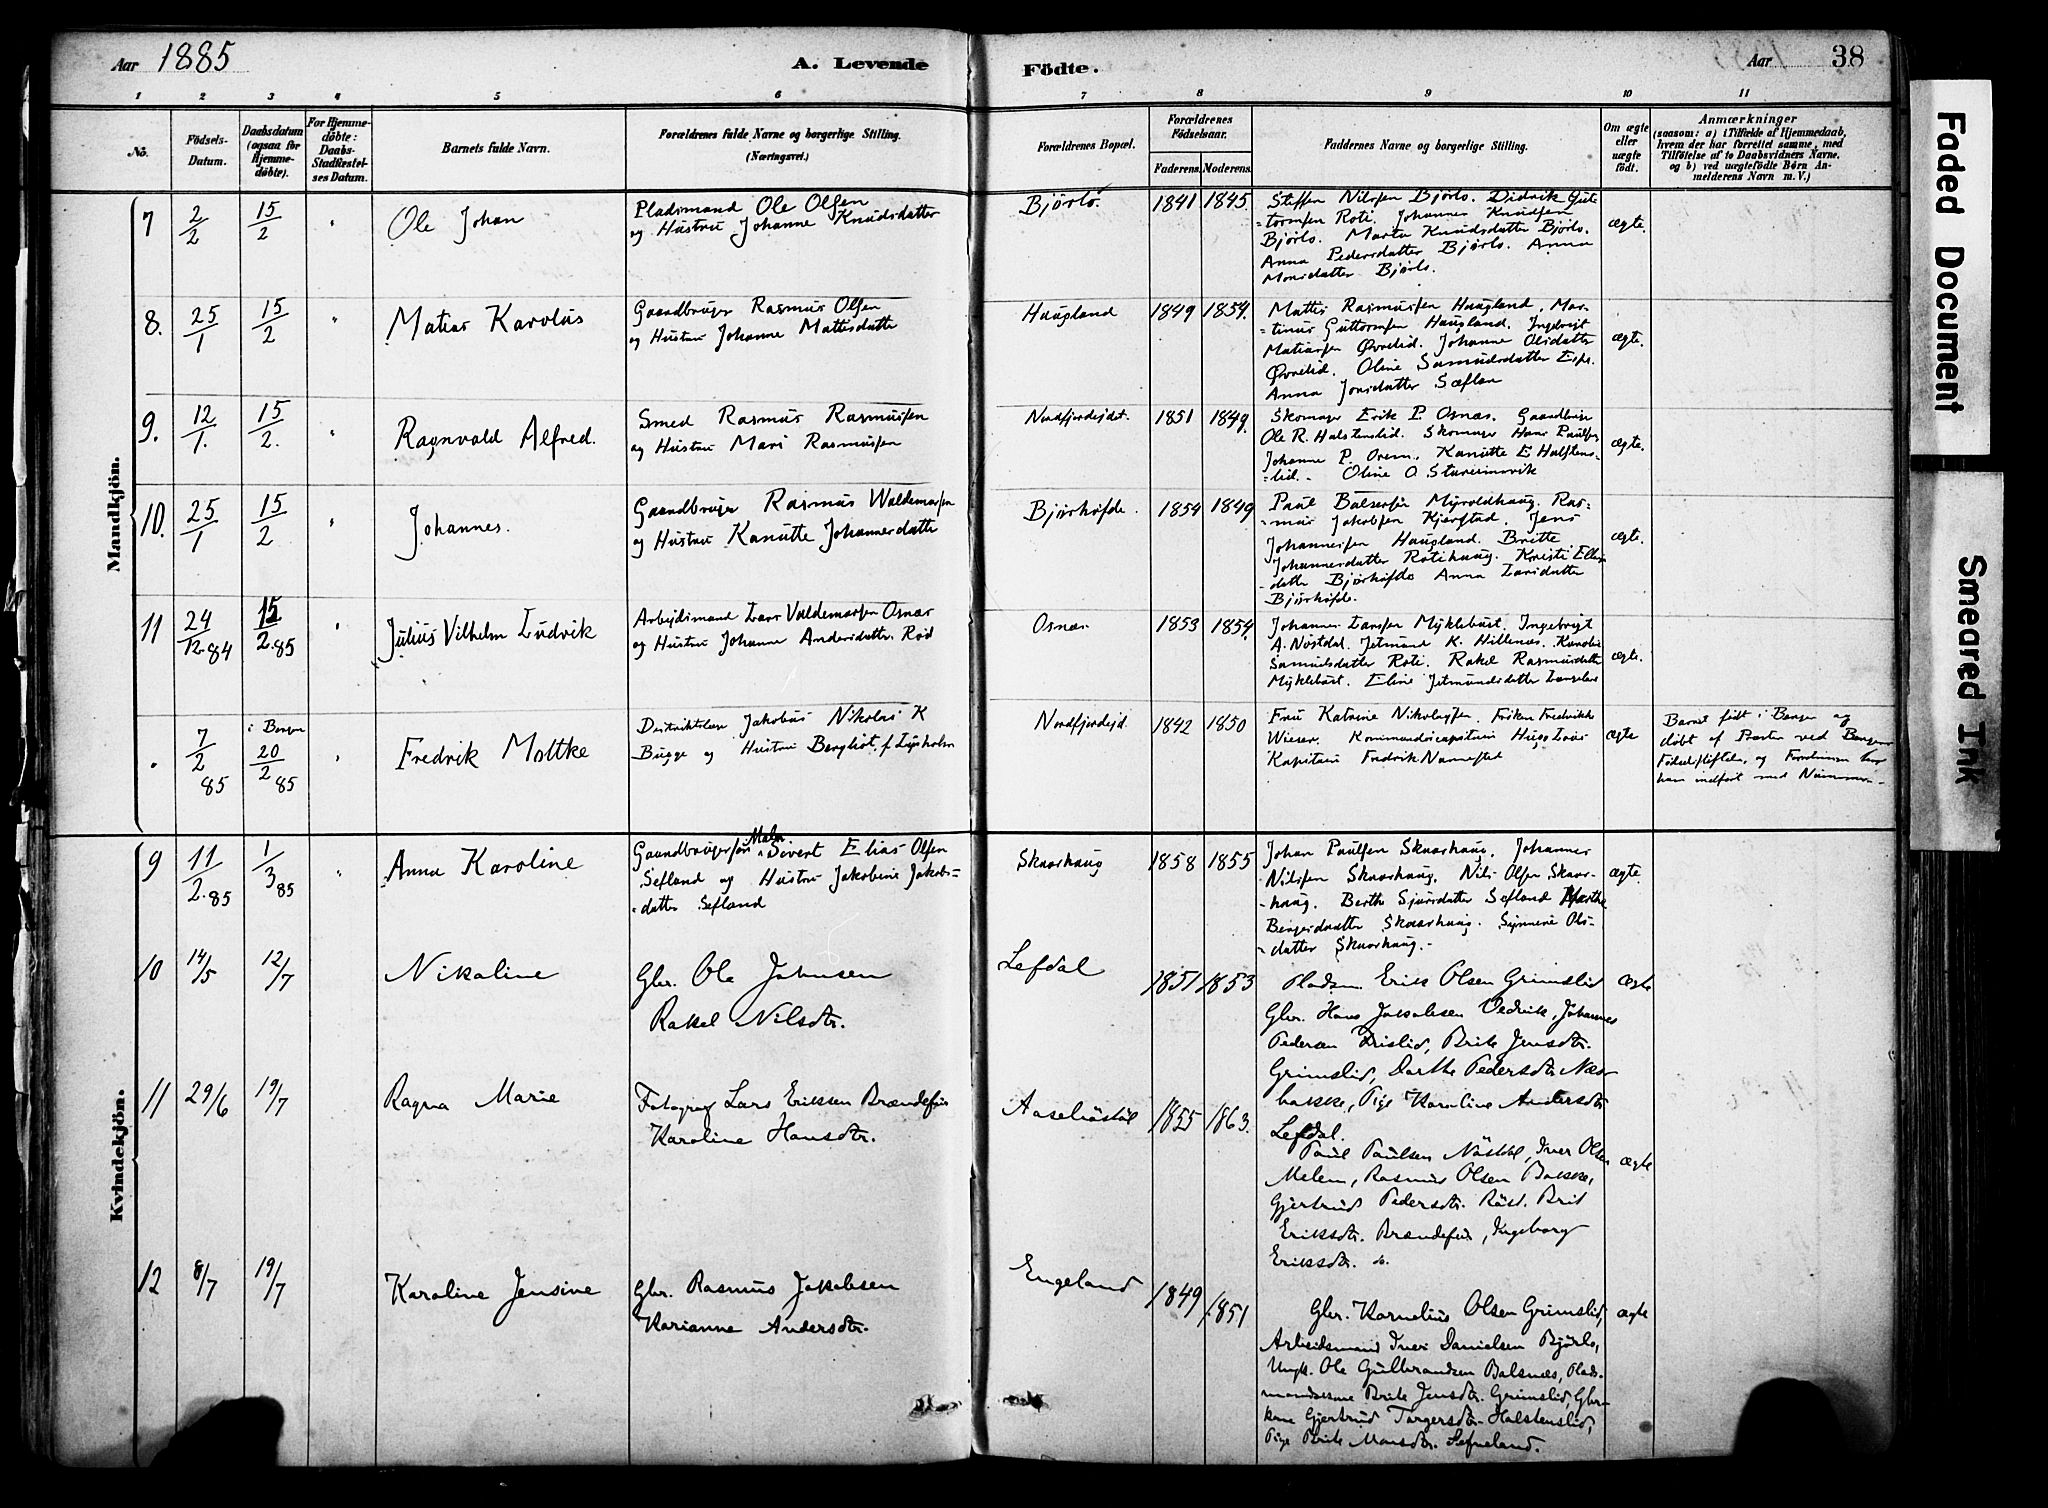 Aar 1885
A. Levende
Födte.
Aar
38
1 2 3 4 5 6 7 8 9 10 11
No.
Födsels-
Datum.
Daabsdatum
(ogsaa for
Hjemme-
döbte).
For Hjemme-
döbte:
Daabs-
Stadfæstel-
ses Datum.
Barnets fulde Navn.
Forældrenes fulde Navne og borgerlige Stilling.
(Næringsvei.)
Forældrenes Bopæl.
Forældrenes
Födselsaar.
Faderens. Moderens.
Faddernes Navne og borgerlige Stilling.
Om ægte
eller
uægte
födt.
Anmærkninger
(saasom: a) i Tilfælde af Hjemmedaab,
hvem der har forrettet samme, med
Tilföielse af to Daabsvidners Navne,
og b) ved uægtefödte Börn An-
melderens Navn m. V.)
Mandkjön.
7 2/2 15/2 " Ole Johan
Pladsmand Ole Olsen
og Hustru Johanne Knudsdatter
Bjørlo. 1841 1845.
Steffen Nilssen Bjørlo. Didrik Gut-
-tormsen Roti. Johannes Knudsen
Bjørlo. Marta Knudsdatter Bjørlo.
Anna Pedersdatter Bjørlo. Anna
Monsdatter Bjørlo.
ægte.
8. 25/1 15/2 " Matias Karolus
Gaardbruger Rasmus Olsen
og Hustru Johanne Mattisdatter
Haugland 1849 1854.
Mattis Rasmussen Haugland, Mar-
-tinus Guttormsen Haugland. Ingebrigt
Matiassen Øvrelid. Johanne Olsdatter
Øvrelid. Oline Samuelsdatter Espe.
Anna Jonsdatter Sæflan
ægte.
9. 12/1. 15/2. " Ragnvald Alfred.
Smed Rasmus Rasmussen
og Hustru Mari Rasmussen
Nordfjordejdet. 1851 1849.
Skomager Erik P. Osnæs. Gaardbruger
Ole R. Halstenslid. Skomager Hans Paulsen
Johanne P. Orem. Kanutte E Halstens-
-lid. Oline O
ægte.
10. 25/1 15/2 " Johannes.
Gaardbruger Rasmus Waldemarsen
og Hustru Kanutte Johannesdatter
Bjørhofde. 1854 1849
Paul Balsersen Myroldhaug. Ras-
-mus Jakobsen Kjerstad. Jens
Johannessen Haugland. Britte
Johannesdatter Rotihaug. Kristi Elles
datter Bjørhofde Anna Larsdatter
Bjørhofde.
ægte.
11 24/12.84 15/2.85 " Julius Vilhelm Ludvik
Arbejdsmand Lars Valdemarsen Osnæs
og Hustru Johanne Andersdatter Rød
Osnæs. 1853 1854.
Johannes Larssen Myklebust. Ingebrigt
A. Nøstdal. Jetmund K. Hillenes. Karolin
Samuelsdatter Roti. Rakel Rasmusdatter
Myklebust. Eline Jetmundsdatter
ægte.
. 7/2 85 i Bergen 20/2 85 " Fredrik Moltke
Distriktslæge Jakobus Nikolas K
Bugge og Hustru Bergliot f. Lysholm
Nordfjordejd. 1842 1850
Fru Katrine Nikolaysen. Frøken Fredrikke
Wieser. Kommandørcapitain Hugo
Kapitain Fredrik
ægte
Barnet født i Bergen og
døbt af Præsten ved Bergens
Fødselsstiftelse, og
indført med Nummer.-
Kvindekjön.
9 11/2.85 1/3 85 " Anna Karoline
Gaardbrugersøn Maler Sivert Elias Olsen
Sefland og Hustru Jakobine Jakobs-
-datter Sefland
Skaarhaug 1858 1855
Johan Paulsen Skaarhaug. Johannes
Nilssen Skaarhaug. Nils Olsen Skaar-
-haug. Berthe Sjursdatter Sefland Marthe
Bergesdaatter Skaarhaug. Synneve Ols-
-datter Skaarhaug.-
ægte.
10 14/5 12/7 Nikoline
Gbr. Ole Johnsen
Rakel Nilsdtr.
Lefdal 1851 1853
Pladsm. Erik Olsen Grimslid
Gbr. Hans Jakobsen Vedvik, Johannes
Pedersen Trislid, Brite Jensdtr.
Grimslid, Dorthe Pedersdtr. Nær
bakke, Pige Karoline Andersdtr.
Lefdal.
ægte
11 29/6 19/7 Ragna Marie
Fotograf Lars Eriksen Brændefur
Karoline Hansdtr.
1855 1863.
Paul Paulsen Nøstdal, Iver Olsen
Melem, Rasmus Olsen Bakke,
Gjertrud Pedersdtr. Røst. Brit
Eriksdtr. Brændefur, Ingeborg
Eriksdtr. do.
ægte
12 8/7 19/7 Karoline Jensine
Gbr. Rasmus Jakobsen
Marianne Andersdtr.
Engeland 1849 1851
Gbr. Kornelius Olsen Grimslid,
Arbeidsmand Iver Danielsen Bjørlo,
Ungk. Ole Gulbrandsen Balsnes, Plads-
mandskone Brite Jensdtr. Grimslid, Gbr-
kone Gjertrud Torgersdtr. Halstenslid,
Pige Brite Monsdtr. Lefneland.
ægte
Faded Document
Smeared Ink